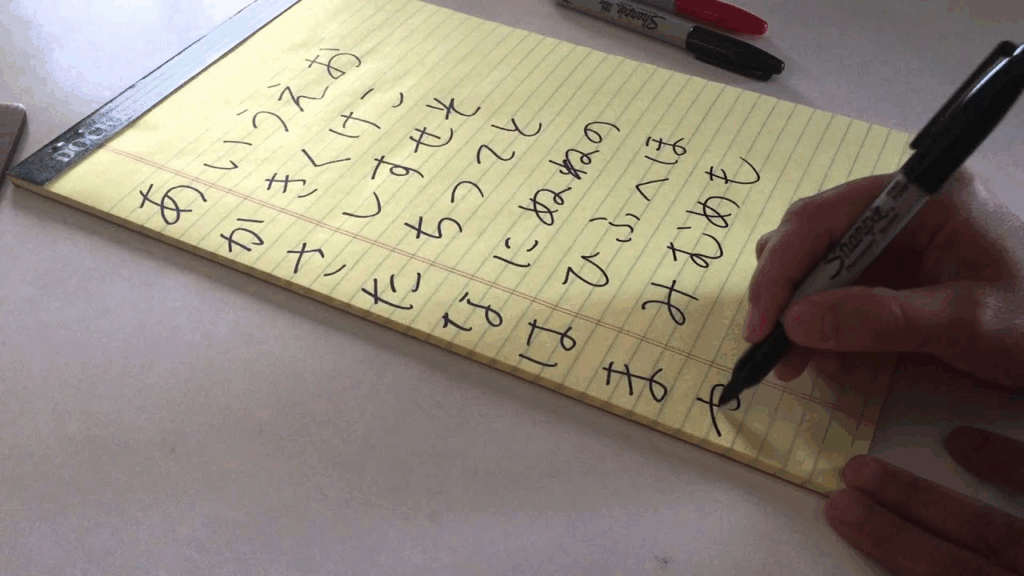 あいうえお
かきくけこ
さしすせそ
たちつてと
なにぬねの
はひふへほ
まみむめも
や
Sharpie
Sharpie